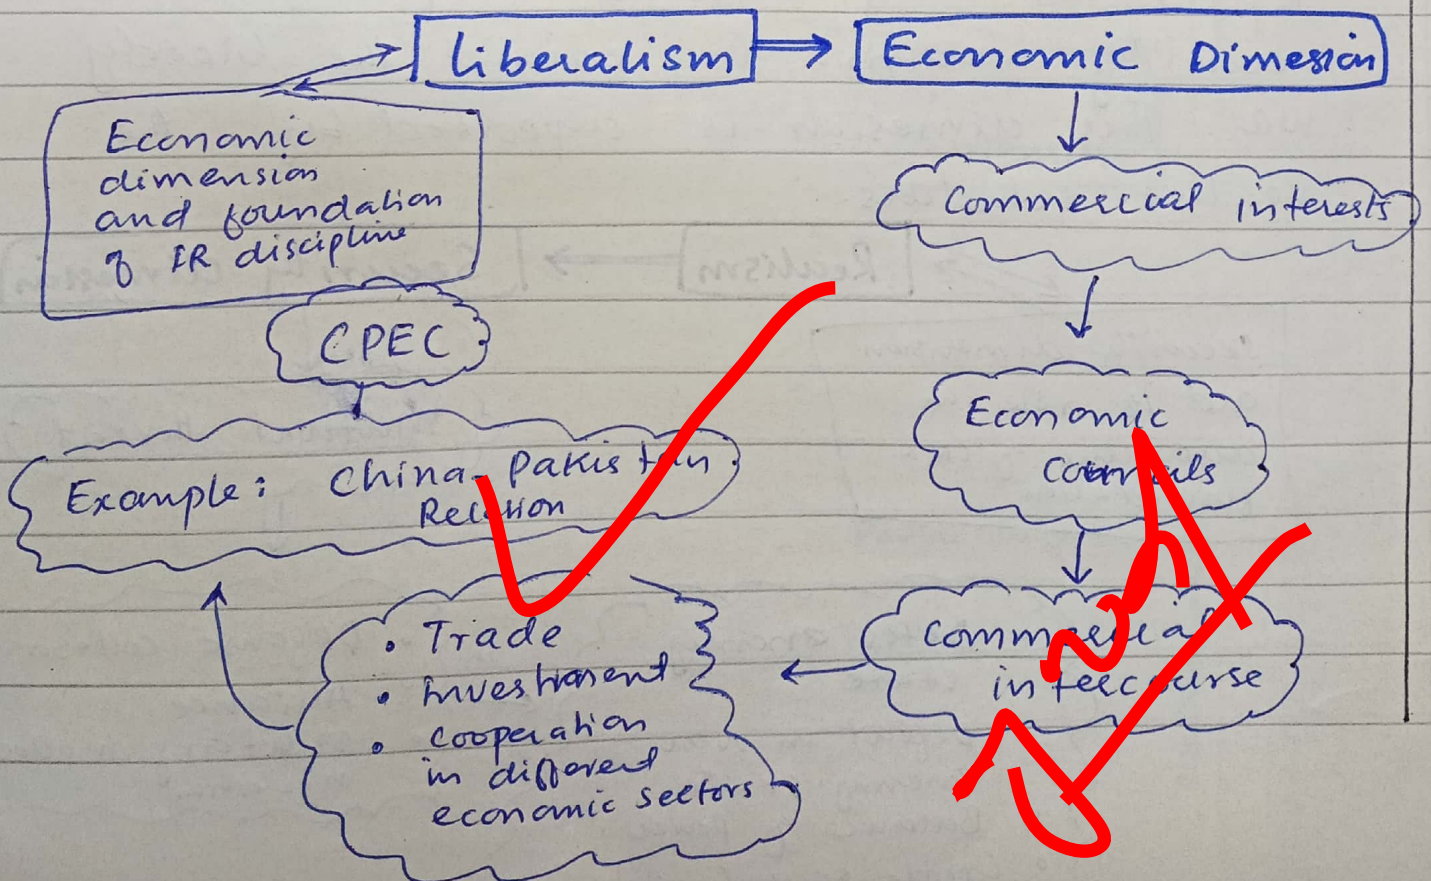 liberalism
Economic Dimesion
Economic
dimension
and foundation
of IR discipline
Commercial interests
CPEC
Economic
Example: China-Pakistan
Relation
Commercial
intercourse
• Trade
• investment
• cooperation
in different
economic sectors